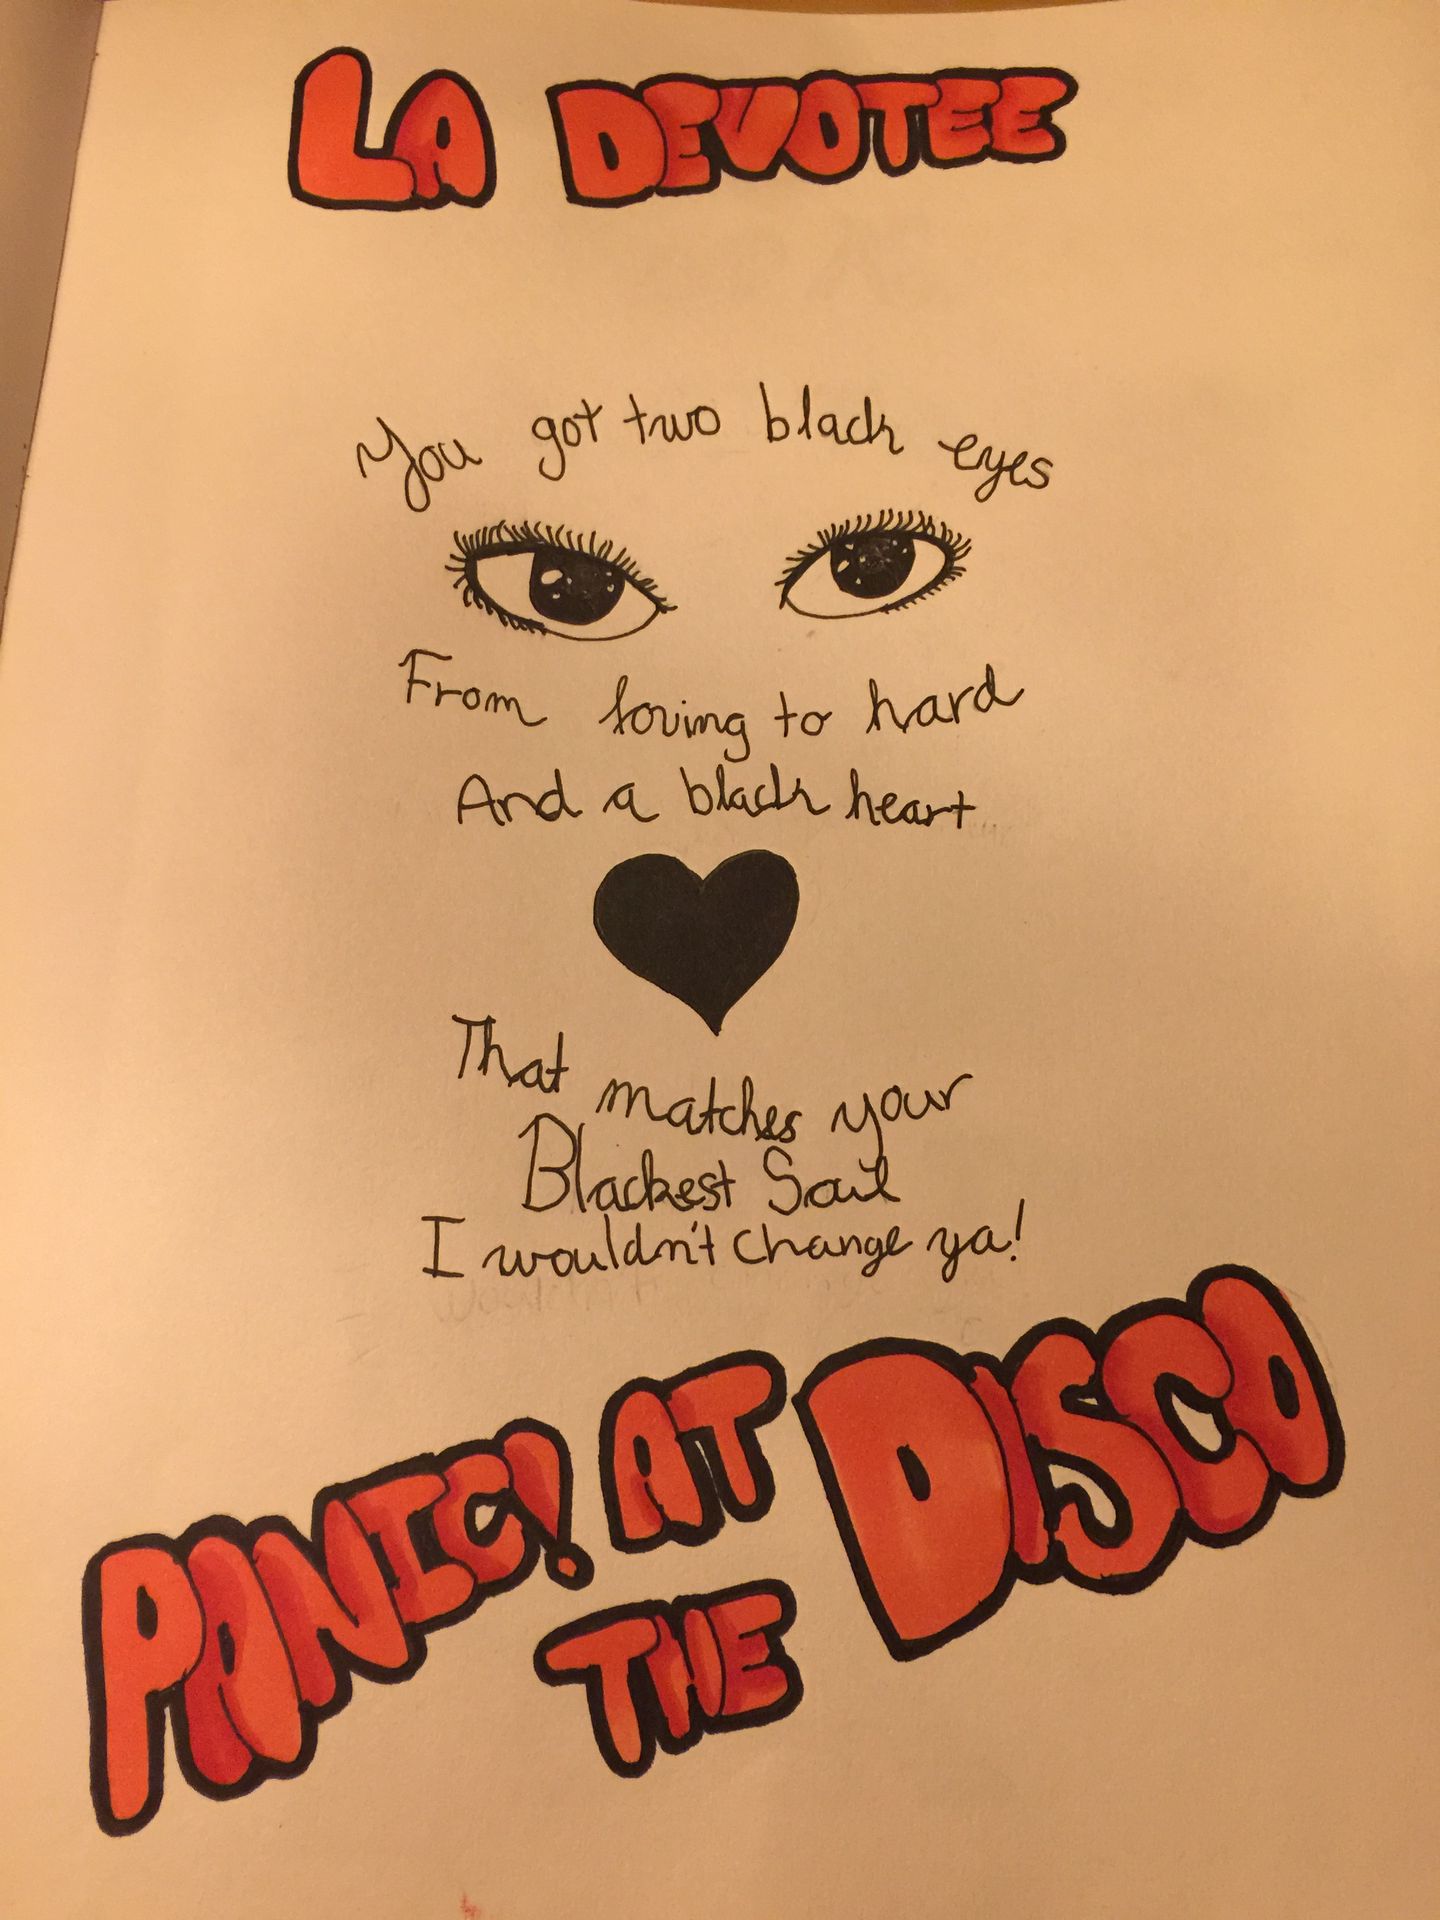 LA DEVOTEE
You got two black eyes
From loving to hard
And a black heart
That matches your
Blackest Soul
I wouldn't change ya!
PANIC! AT
THE
DISCO